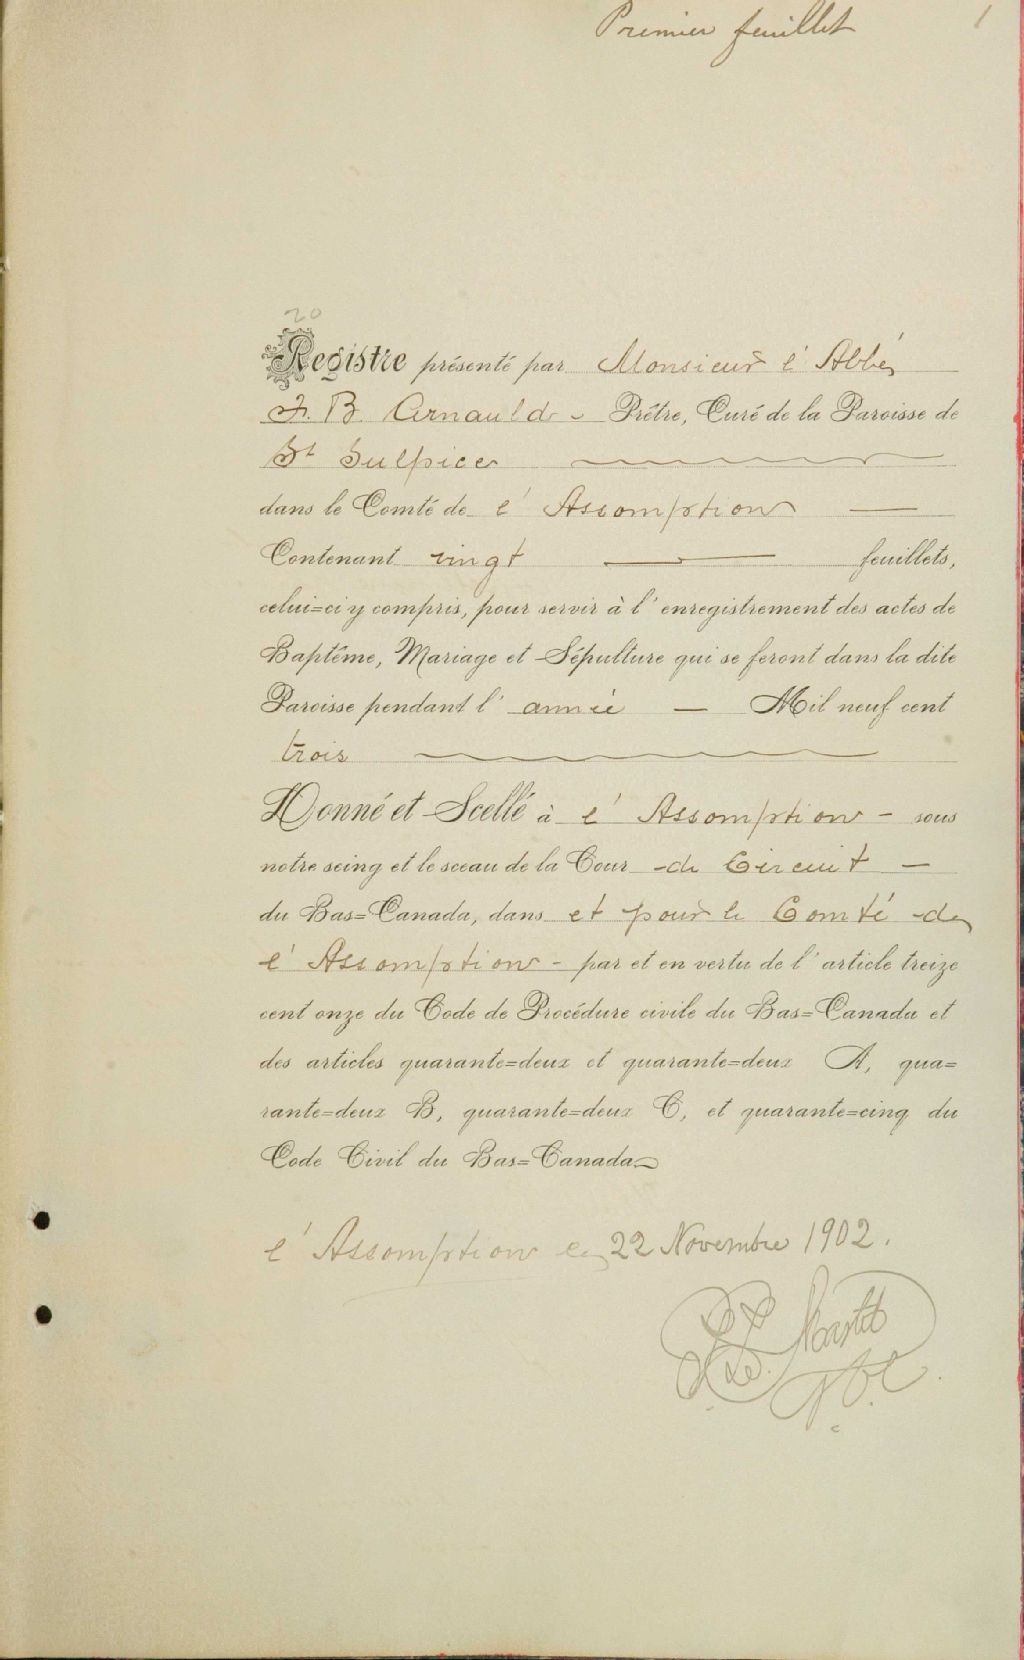 Premier feuillet 1
20
Registre présenté par Monsieur l'Abbé
F. B. Arnauld - Prêtre, Curé de la Paroisse de
St Sulpice
dans le Comté de l'Assomption —
Contenant vingt — feuillets,
celui=ci y compris, pour servir à l'enregistrement des actes de
Baptême, Mariage et Sépulture qui se feront dans la dite
Paroisse pendant l'année — Mil neuf cent
trois
Donné et Scellé à l'Assomption - sous
notre seing et le sceau de la Cour de Circuit —
du Bas=Canada, dans et pour le Comté de
l'Assomption - par et en vertu de l'article treize
cent onze du Code de Procédure civile du Bas=Canada et
des articles quarante=deux et quarante=deux A, qua=
rante=deux B, quarante=deux C, et quarante=cinq du
Code Civil du Bas=Canada
l'Assomption le 22 Novembre 1902.